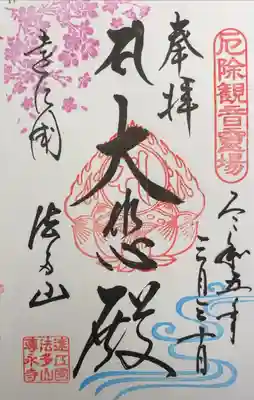 厄除観音霊場
奉拝
令和五年
三月三十日
大悲殿
遠江国
法多山
遠江国
法多山
尊永寺